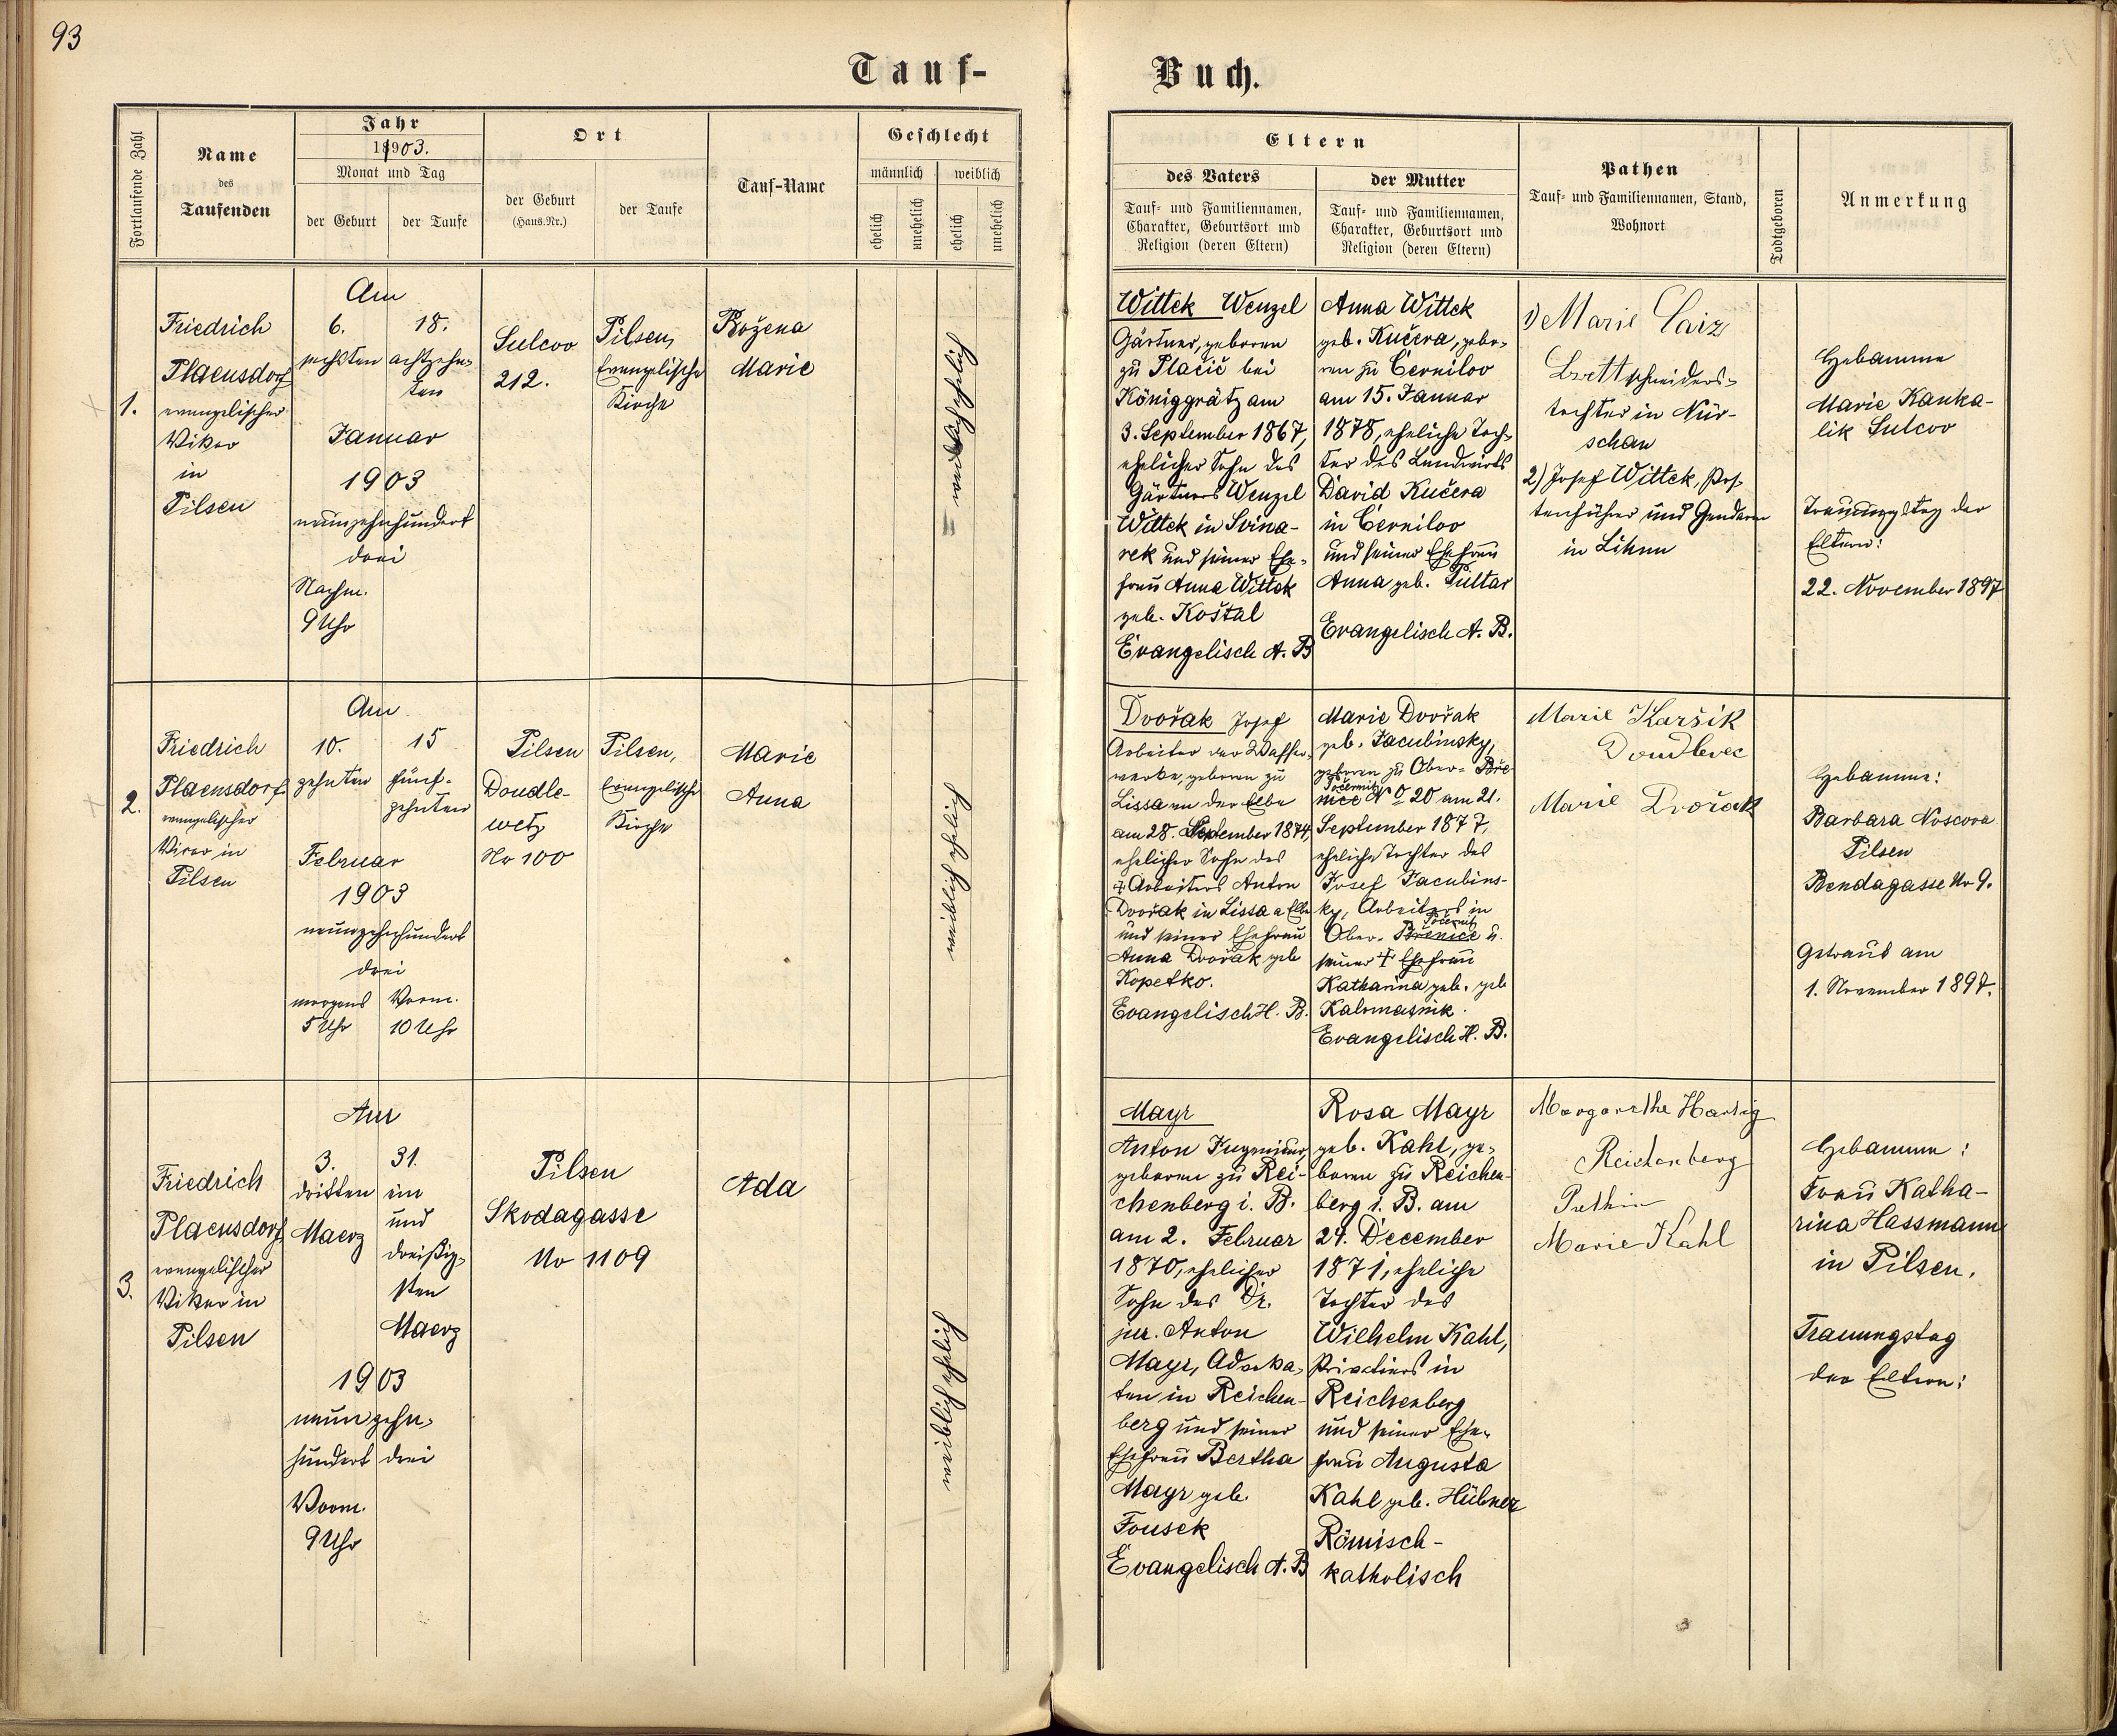 93
Tauf-
Buch.
Fortlaufende Zahl
Name
des
Taufenden
Jahr
1903.
Monat und Tag
der Geburt
der Taufe
Ort
der Geburt
(Haus.Nr.)
der Taufe
Tauf-Name
Geschlecht
männlich
weiblich
ehelich
unehelich
ehelich
unehelich
Eltern
des Vaters
Tauf- und Familiennamen,
Charakter, Geburtsort und
Religion (deren Eltern)
der Mutter
Tauf- und Familiennamen,
Charakter, Geburtsort und
Religion (deren Eltern)
Pathen
Tauf- und Familiennamen, Stand,
Wohnort
Todtgeboren
Anmerkung
1.
Friedrich
Plaensdorf
evangelischer
Vikar
in
Pilsen
Am
6.
sechsten
18.
achtzehn-
ten
Januar
1903
neunzehnhundert
drei
Nachm.
9 Uhr
Sulcov
212.
Pilsen,
Evangelische
Kirche
Božena
Marie
weiblich ehelich
Wittek Wenzel
Gärtner, geboren
zu Plačic bei
Königgrätz am
3. September 1867,
ehelicher Sohn des
Gärtners Wenzel
Wittek in Svina-
rek und seiner Ehe-
frau Anna Wittek
geb. Koštal
Evangelisch A. B
Anna Wittek
geb. Kučera, gebo-
ren zu Černilov
am 15. Januar
1878, eheliche Toch-
ter des Landwirts
David Kučera
in Černilov
und seiner Ehefrau
Anna geb. Pultar
Evangelisch A. B.
1) Marie Caiz
Brettschneiders-
tochter in Nür-
schan
2) Josef Wittek, Pos-
tenführer und Gendarm
in Lihn
Hebamme
Marie Kauka-
lik Sulcov
Trauungstag der
Eltern:
22. November 1897
2.
Friedrich
Plaensdorf
evangelischer
Vicar in
Pilsen
Am
10.
zehnten
15
fünf-
zehnten
Februar
1903
neunzehnhundert
drei
morgens
5 Uhr
Vorm.
10 Uhr
Pilsen
Doudle-
wetz
No 100
Pilsen,
Evangelische
Kirche
Marie
Anna
weiblich ehelich
Dvořak Josef
Arbeiter der Wasser-
werke, geboren zu
Lissa an der Elbe
am 28. September 1874,
ehelicher Sohn des
+ Arbeiters Anton
Dvořak in Lissa a Elbe
und seiner Ehefrau
Anna Dvořak geb
Kopetko.
Evangelisch H. B.
Marie Dvořak
geb. Jacubinsky,
geboren zu Ober- Bře-
Počernitz
nice No 20 am 21.
September 1877,
eheliche Tochter des
Josef Jacubins-
ky, Arbeiters in
Počernitz
Ober- Břenice u.
seiner + Ehefrau
Katharina geb. geb
Kalomasnik.
Evangelisch H. B.
Marie Karšik
Doudlevec
Marie Dvořak
Hebamme:
Barbara Noscova
Pilsen
Bendagasse No 9.
Getraut am
1. November 1897.
3.
Friedrich
Plaensdorf
evangelischer
Vikar in
Pilsen
Am
3.
dritten
Maerz
31.
ein
und
dreißig-
sten
Maerz
1903
neunzehn-
hundert drei
Vorm.
9 Uhr
Pilsen
Skodagasse
No 1109
Ada
weiblich ehelich
Mayr
Anton Ingenieur,
geboren zu Rei-
chenberg i. B.
am 2. Februar
1870, ehelicher
Sohn des Dr.
jur. Anton
Mayr, Advoka-
ten in Reichen-
berg und seiner
Ehefrau Bertha
Mayr geb.
Fousek
Evangelisch A. B
Rosa Mayr
geb. Kahl, ge-
boren zu Reichen-
berg i. B. am
24. December
1871, eheliche
Tochter des
Wilhelm Kahl,
Privatiers in
Reichenberg
und seiner Ehe-
frau Augusta
Kahl geb. Hübner
Römisch-
katholisch
Margarethe Hartig
Reichenberg
Pathin
Marie Kahl
Hebamme:
Frau Katha-
rina Hassmann
in Pilsen.
Trauungstag
der Eltern: